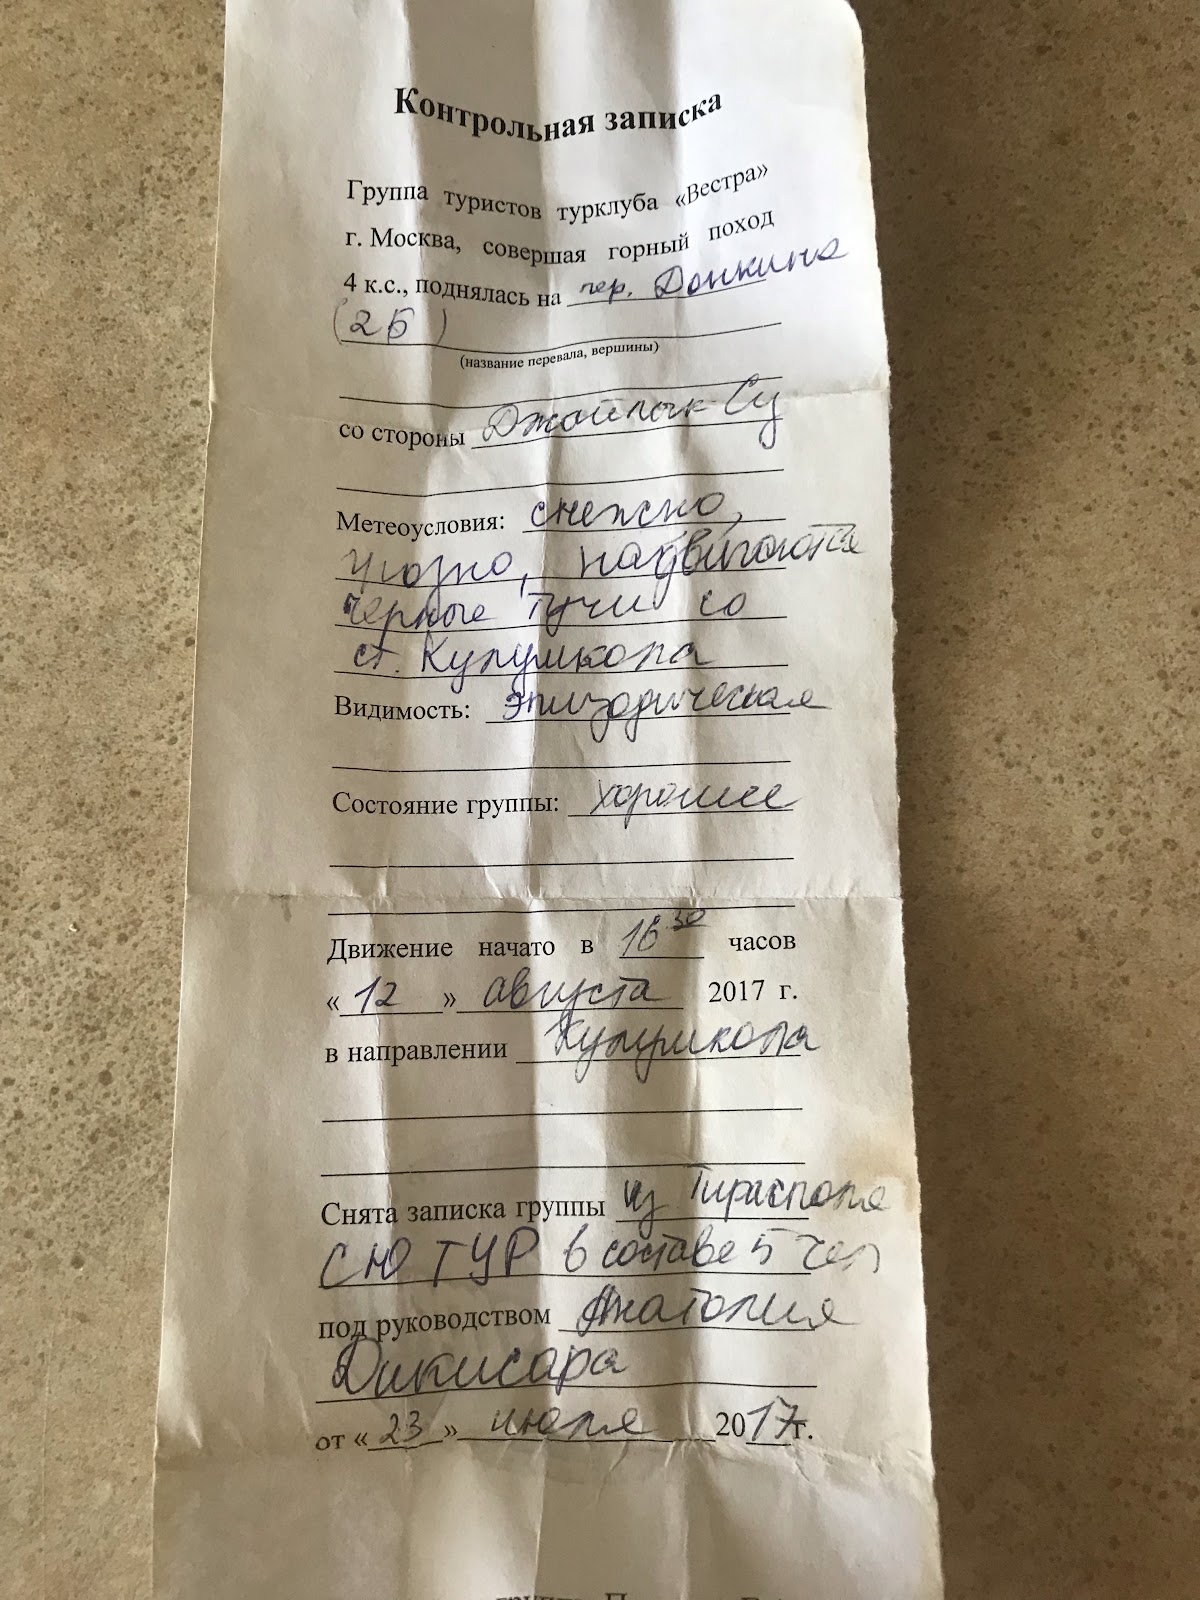 Контрольная записка
Группа туристов турклуба «Вестра»
г. Москва, совершая горный поход
4 к.с., поднялась на пер. Донкина
(2Б)
(название перевала, вершины)
со стороны Джайлык-Су
Метеоусловия: снежно,
грозно, надвигаются
черные тучи со
ст. Кулумкола
Видимость: эпизодическая
Состояние группы: хорошее
Движение начато в 16 30 часов
«12» августа 2017 г.
в направлении Кулумкола
Снята записка группы из Тирасполя
СЮТУР в составе 5 чел
под руководством Анатолия
Дикисара
от «23» июля 2017г.